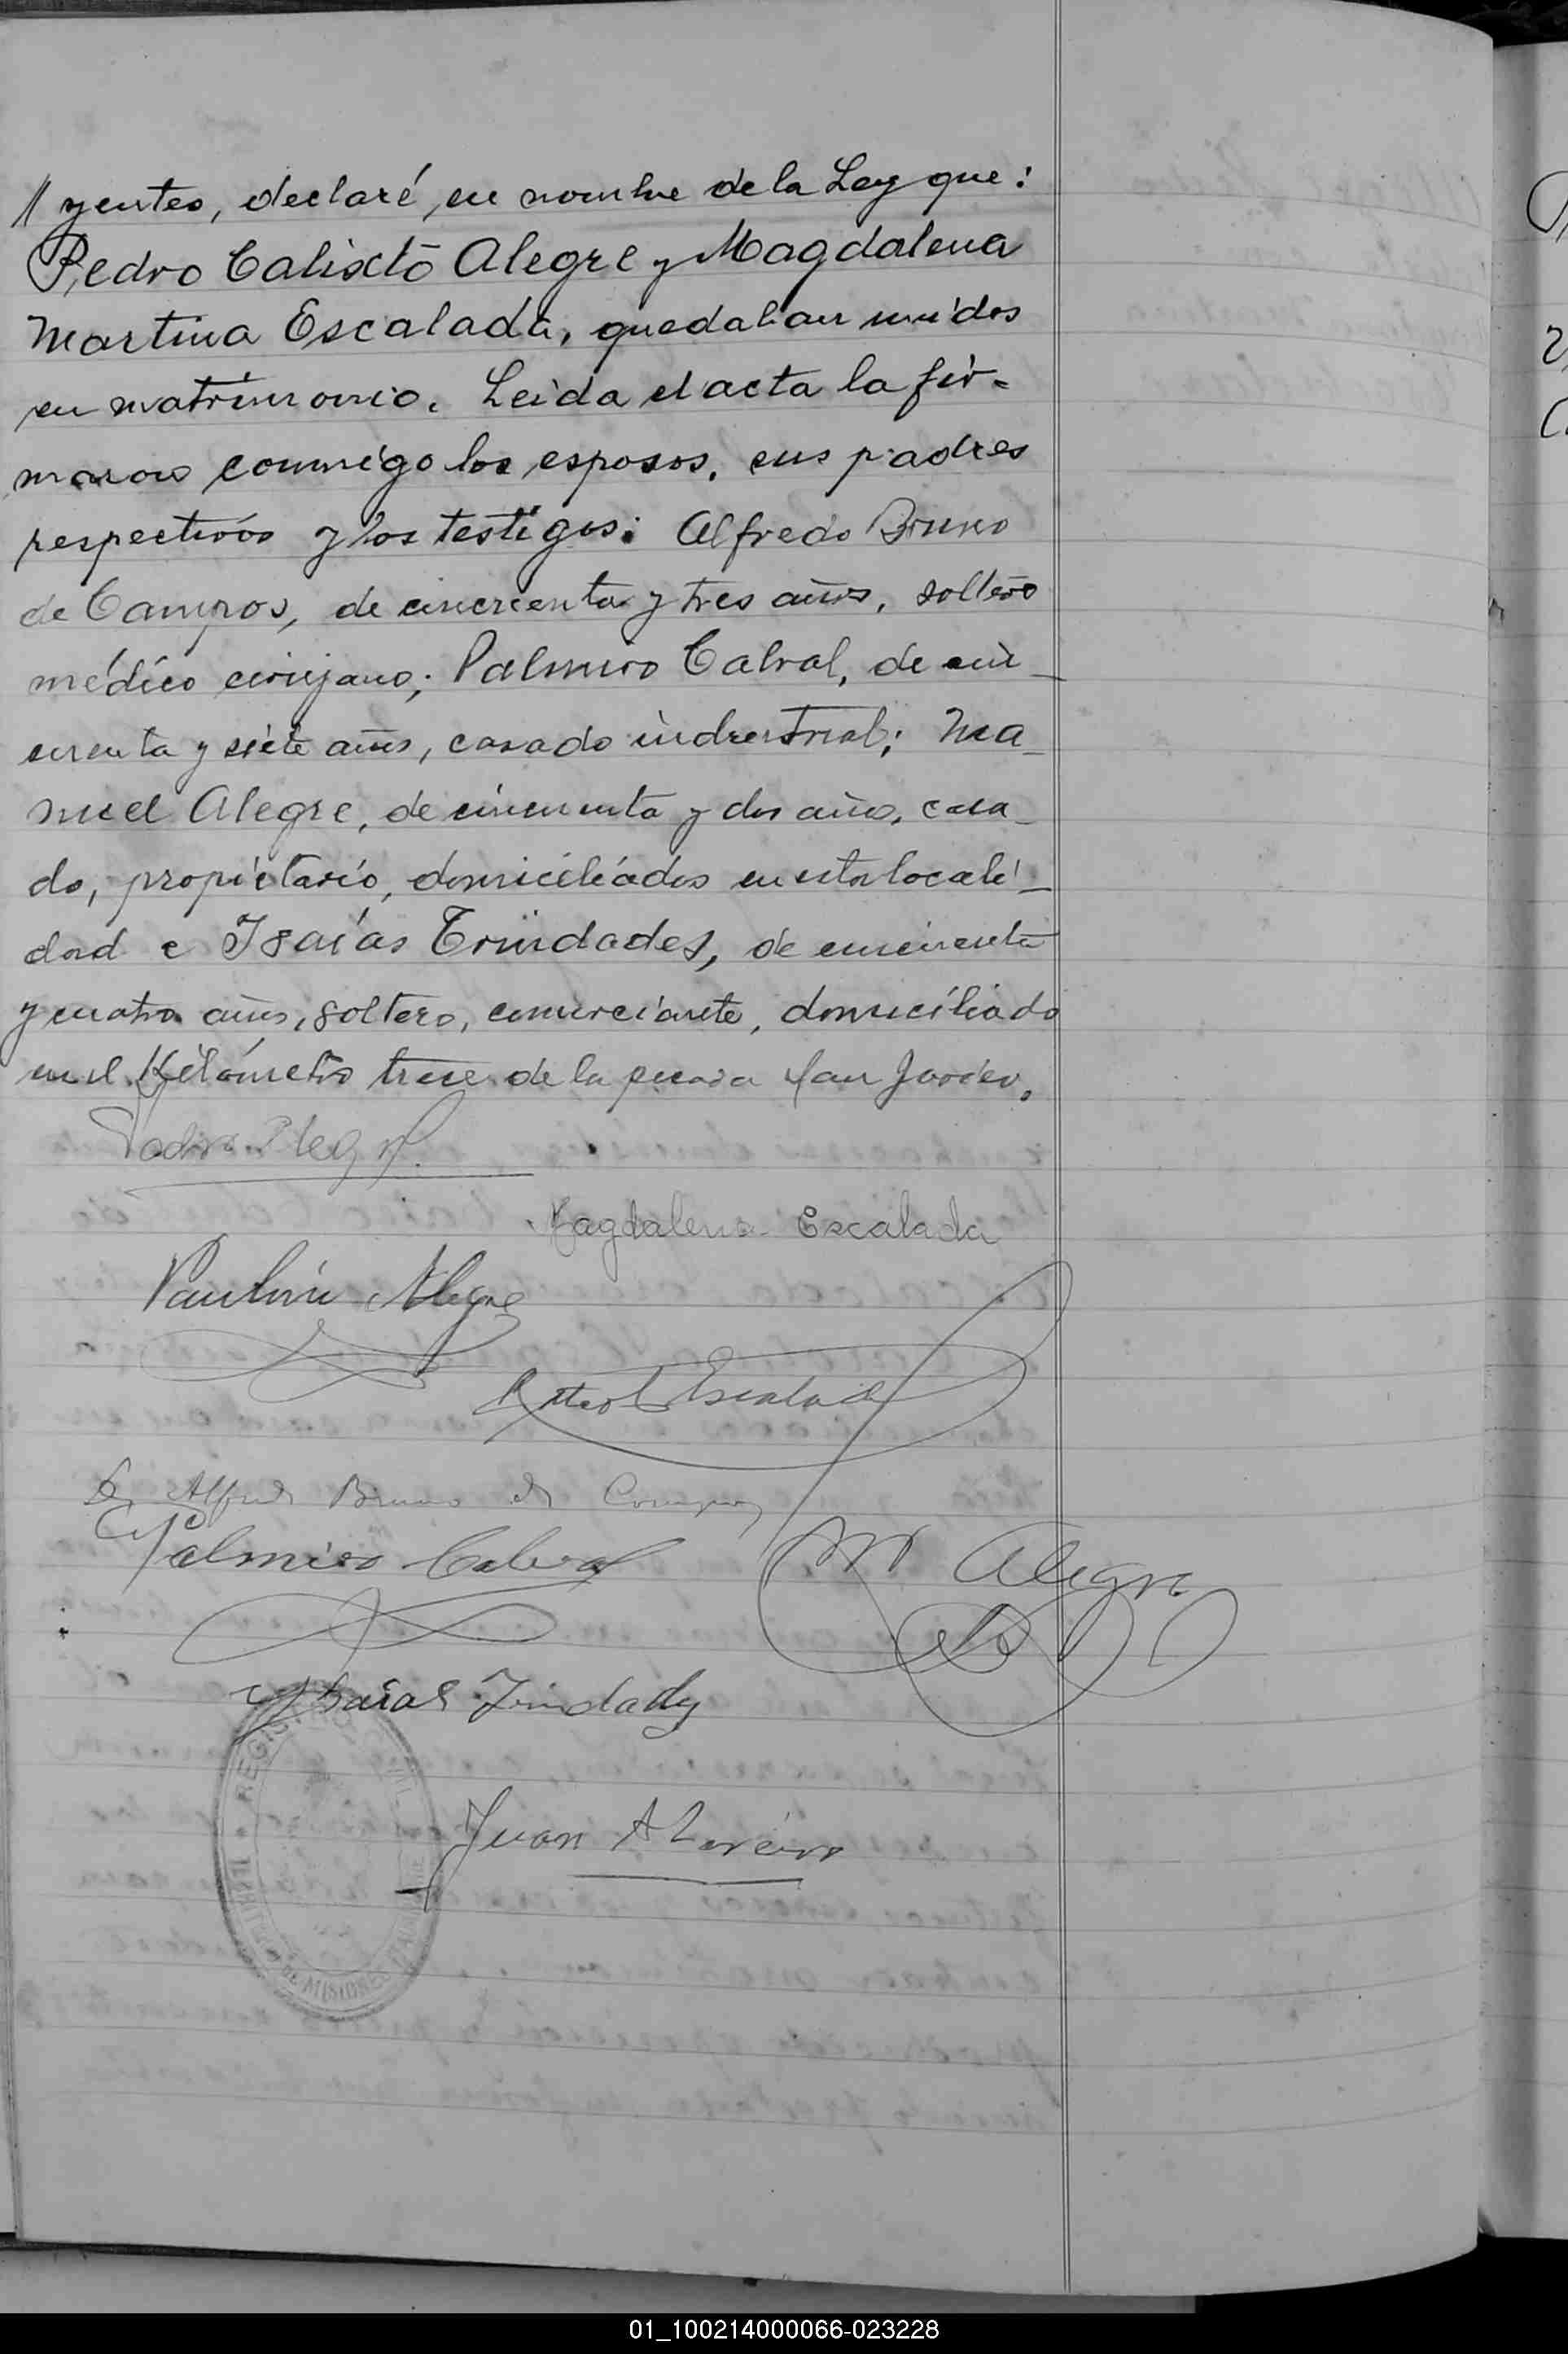 // yentes, declaré, en nombre de la Ley que:
Pedro Calixto Alegre y Magdalena
Martina Escalada, quedaban unidos
en matrimonio. Leida el acta la fir-
maron conmigo los esposos, sus padres
respectivos y los testigos: Alfredo Bruno
de Campos, de cincuenta y tres años, soltero
médico cirujano; Palmiro Cabral, de cin_
cuenta y siete años, casado industrial; Ma_
nuel Alegre, de cincuenta y dos años, casa_
do, propietario, domiciliados en esta locali_
dad e Isaías Trindades, de cincuenta
y cuatro años, soltero, comerciante, domiciliado
en el Kilómetro trece de la picada San Javier.
Pedro Alegre
Magdalena Escalada
Paulino Alegre
Escalada
Alfredo Bruno de Campos
Palmiro Cabral
M Alegre
Isaias Trindades
REGISTRO CIVIL
TERRITORIO DE MISIONES
Juan A
01_100214000066-023228